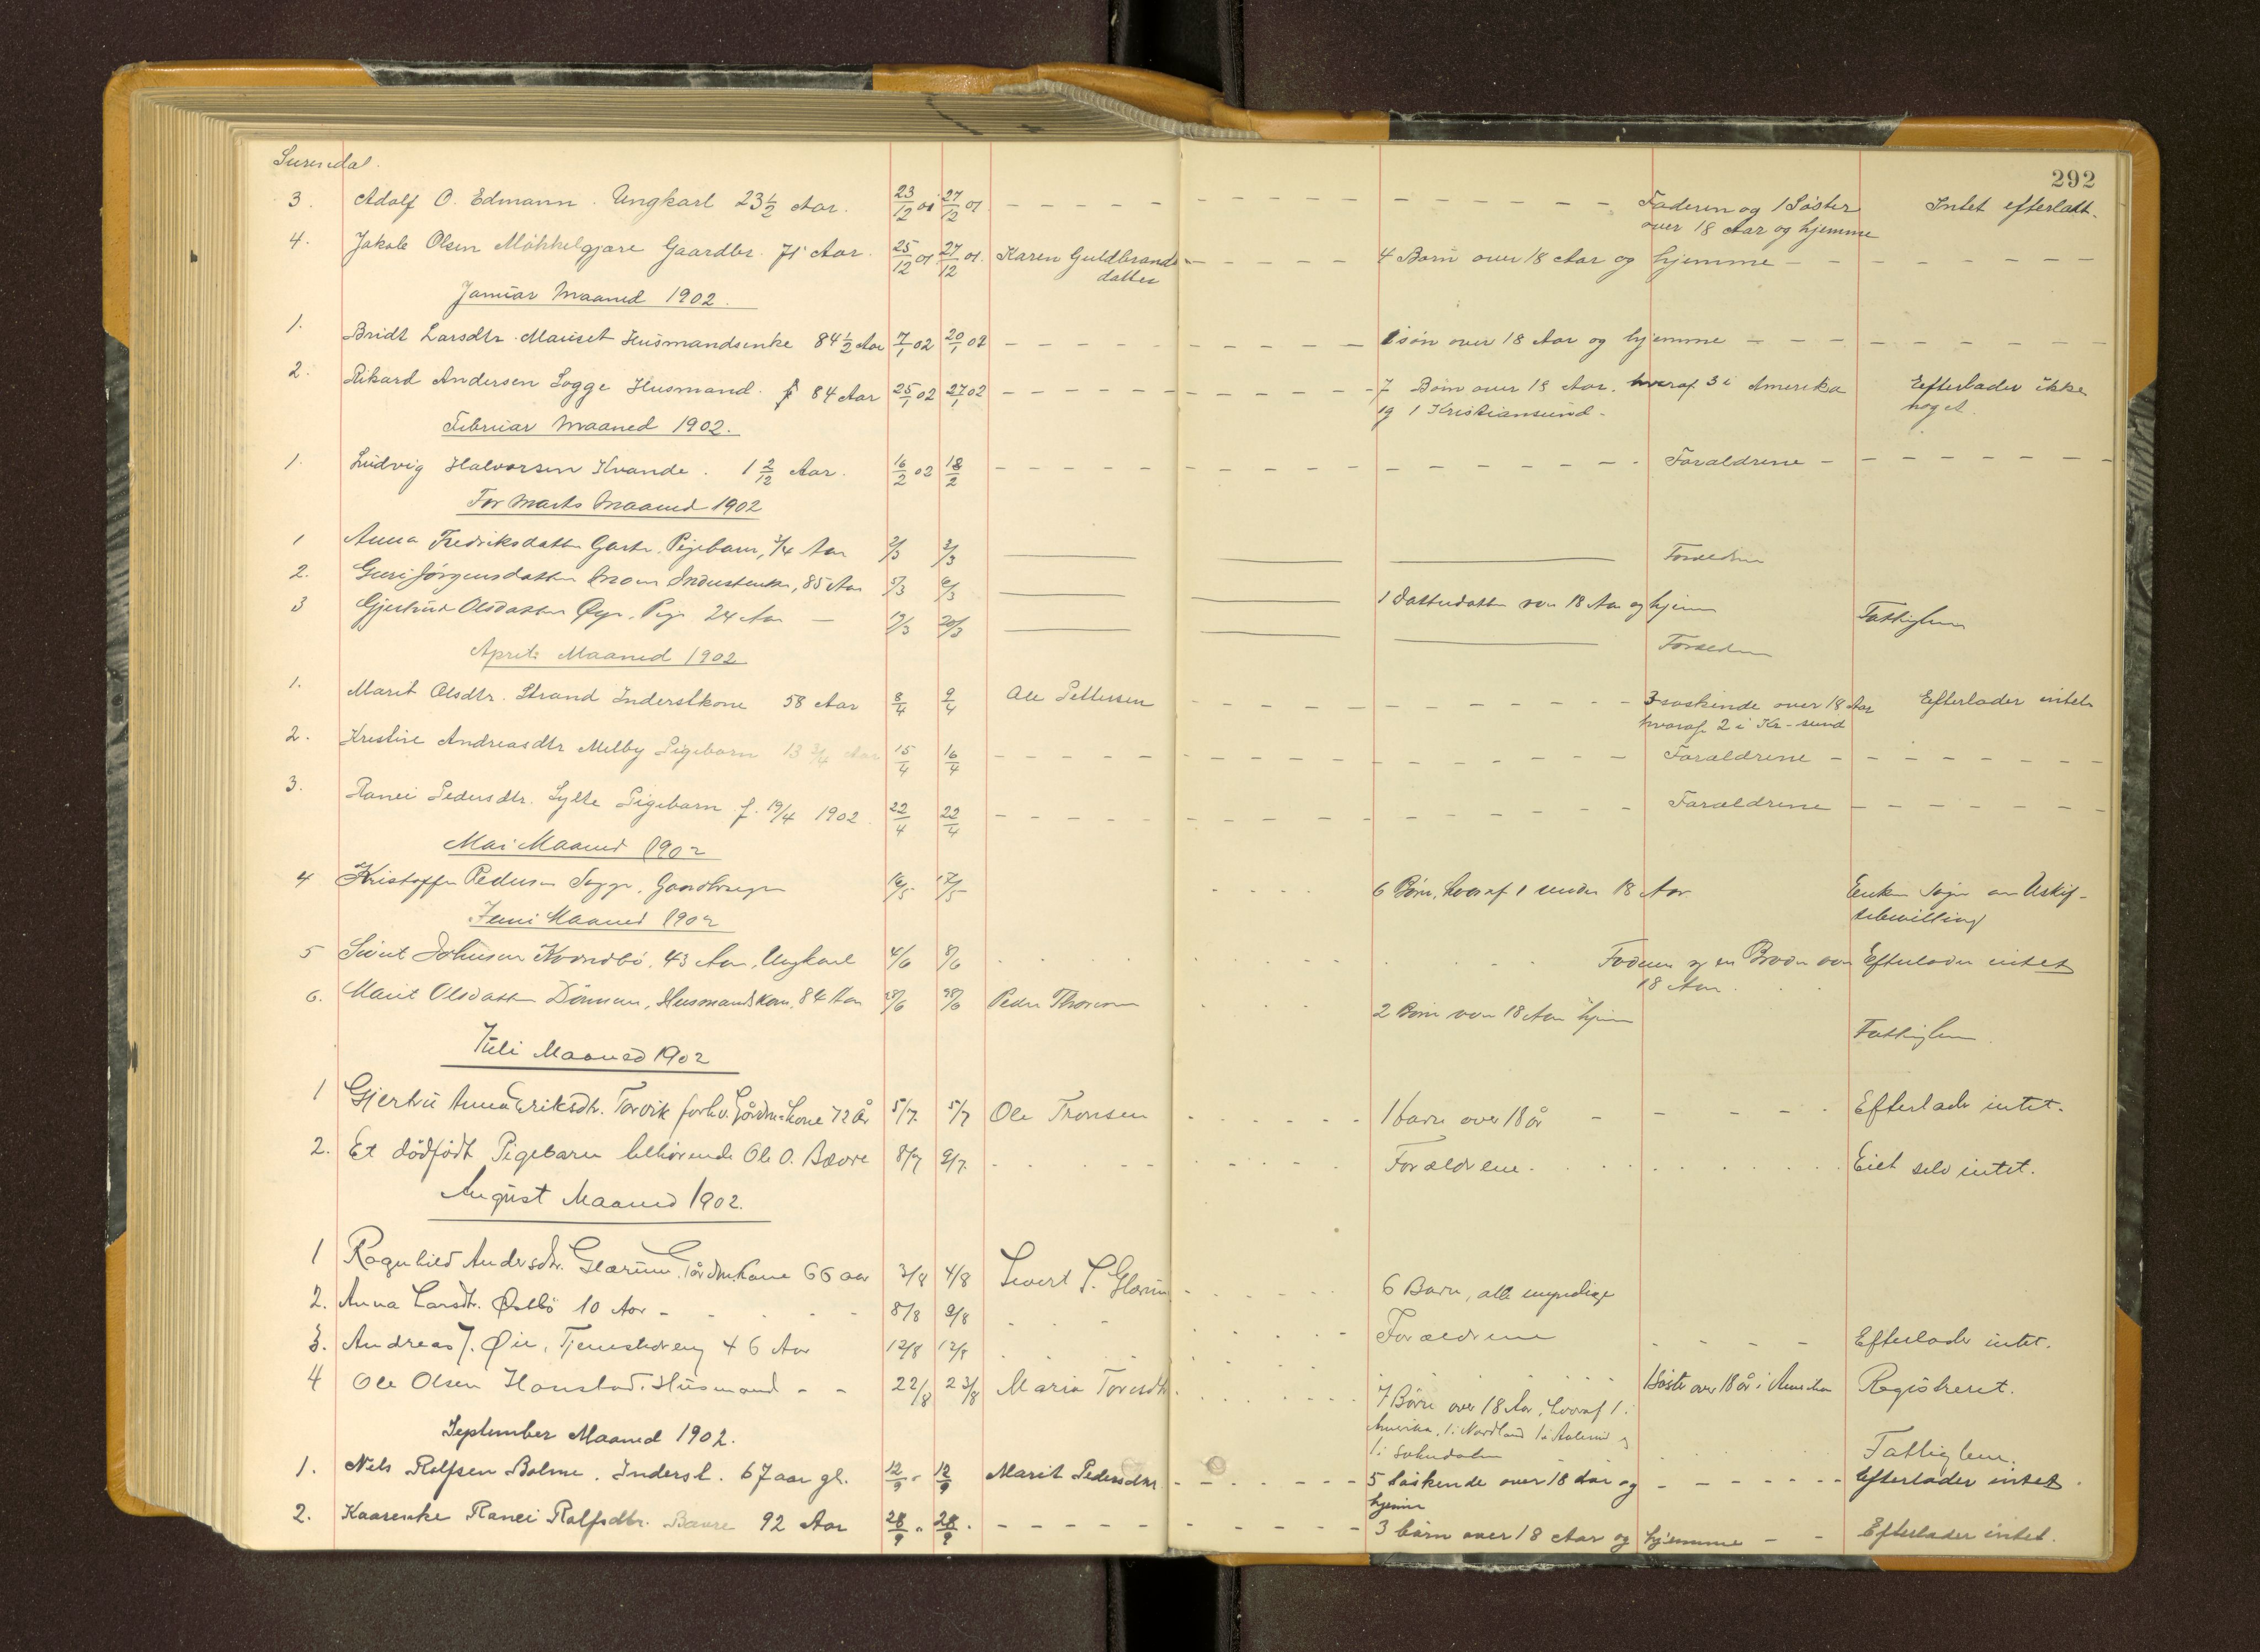 292
Surendal.
3. Adolf O. Edmann. Ungkarl 23 1/2 Aar. 23/12 01 27/12 01. Faderen og 1 Söster Intet efterladt.
over 18 Aar og hjemme
4. Jakob Olsen Mökkelgjære Gaardbr. 71 Aar. 25/12 01 27/12 01. Karen Guldbrands- 4 Börn over 18 Aar og hjemme
datter
Januar Maaned 1902.
1. Bridt Larsdtr. Mauset Husmandsenke 84 1/2 Aar 7/1 02 20/1 02 1 sön over 18 Aar og hjemme
2. Rikard Andersen Sogge Husmand. 84 Aar 25/1 02 27/1 02 7 Börn over 18 Aar. hvoraf 3 i Amerika Efterlader ikke
og 1 Kristiansund. noget
Februar Maaned 1902.
1. Ludvig Halvorsen Kvande. 1 2/12 Aar. 16/2 02 18/2 Forældrene
For Marts Maaned 1902
1 Anna Fredriksdatter Pigebarn, 3/4 Aar 2/3 3/3 Forældrene
2. Guri Jörgensdatter Moen Inderstenke, 85 Aar 5/3 6/3 1 Datterdatter over 18 Aar og hjemme Fattiglem
3 Gjertrud Olsdatter Øye. Pige 24 Aar 20/3 Forældrene
April Maaned 1902
1. Marit Olsdtr. Strand Inderstkone 58 Aar 8/4 9/4 Ole Pettersen 3 söskende over 18 Aar Efterlader intet
hvoraf 2 i Kr-sund
2. Kristine Andreasdtr Melby Pigebarn 13 3/4 Aar 15/4 16/4 Forældrene
3. Ranei Pedersdtr. Sylte Pigebarn f. 19/4 1902. 22/4 22/4 Forældrene
Mai Maaned 1902
4 Kristoffer Pedersen Sogge, Gaardbruger 16/5 17/5 6 Börn, hvoraf 1 under 18 Aar Enken søger om Uskif-
tebevilling
Juni Maaned 1902
5 Sivert Johnsen 43 Aar, Ungkarl 4/6 8/6 Faderen og en Broder over Efterlader intet
18 Aar
6. Marit Olsdatter Husmandskone, 84 Aar 28/6 Peder Thoresen 2 Börn over 18 Aar hjemme Fattiglem.
Juli Maaned 1902
1 Gjertru Anna Eriksdtr. Torvik forhv. Gårdm.kone 72 År 5/7. 5/7 Ole Tronsen 1 barn over 18 år Efterlader intet.
2. Et dödfödt Pigebarn tilhörende Ole O. Bævre 8/7 9/7. Forældrene. Eiet selv intet.
August Maaned 1902.
1 Ragnhild Andersdtr. Glærum. Gårdm.kone 66 aar 3/8 4/8 Sivert S. Glærum 6 Barn, alle myndige
2. Anna Larsdtr. 10 Aar 8/8 9/8 Forældrene Efterlader intet.
3. Andreas J. Øie, Tjenestedreng 46 Aar 12/8 12/8 1 Söster over 18 år i Amerika Registreret.
4 Ole Olsen Honstad. Husmand 22/8 23/8 Maria Toresdtr 7 Børn over 18 Aar, hvoraf 1 i
Amerika, 1 i Nordland 1 i Aalesund og
1 i Fattiglem.
September Maaned 1902.
1. Nils Rolfsen Bolme. Inderst. 67 aar gl. 12/9 12/9 Marit Pedersdtr. 5 Söskende over 18 Aar og Efterlader intet.
hjemme
2. Kaarenke Ranei Rolfsdtr. Bævre 92 Aar 28/9 28/9. 3 börn over 18 Aar og hjemme Efterlader intet.